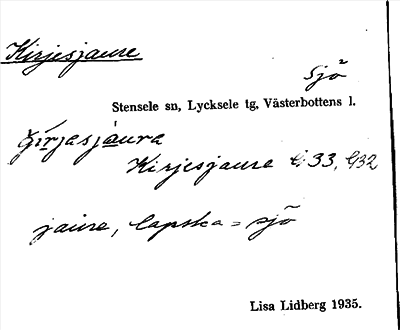 Kirjesjaure
Sjö
Stensele sn, Lycksele tg, Västerbottens l.
Girjasjaura
Kirjesjaure G 33, G32
jaure, lapska = sjö
Lisa Lidberg 1935.